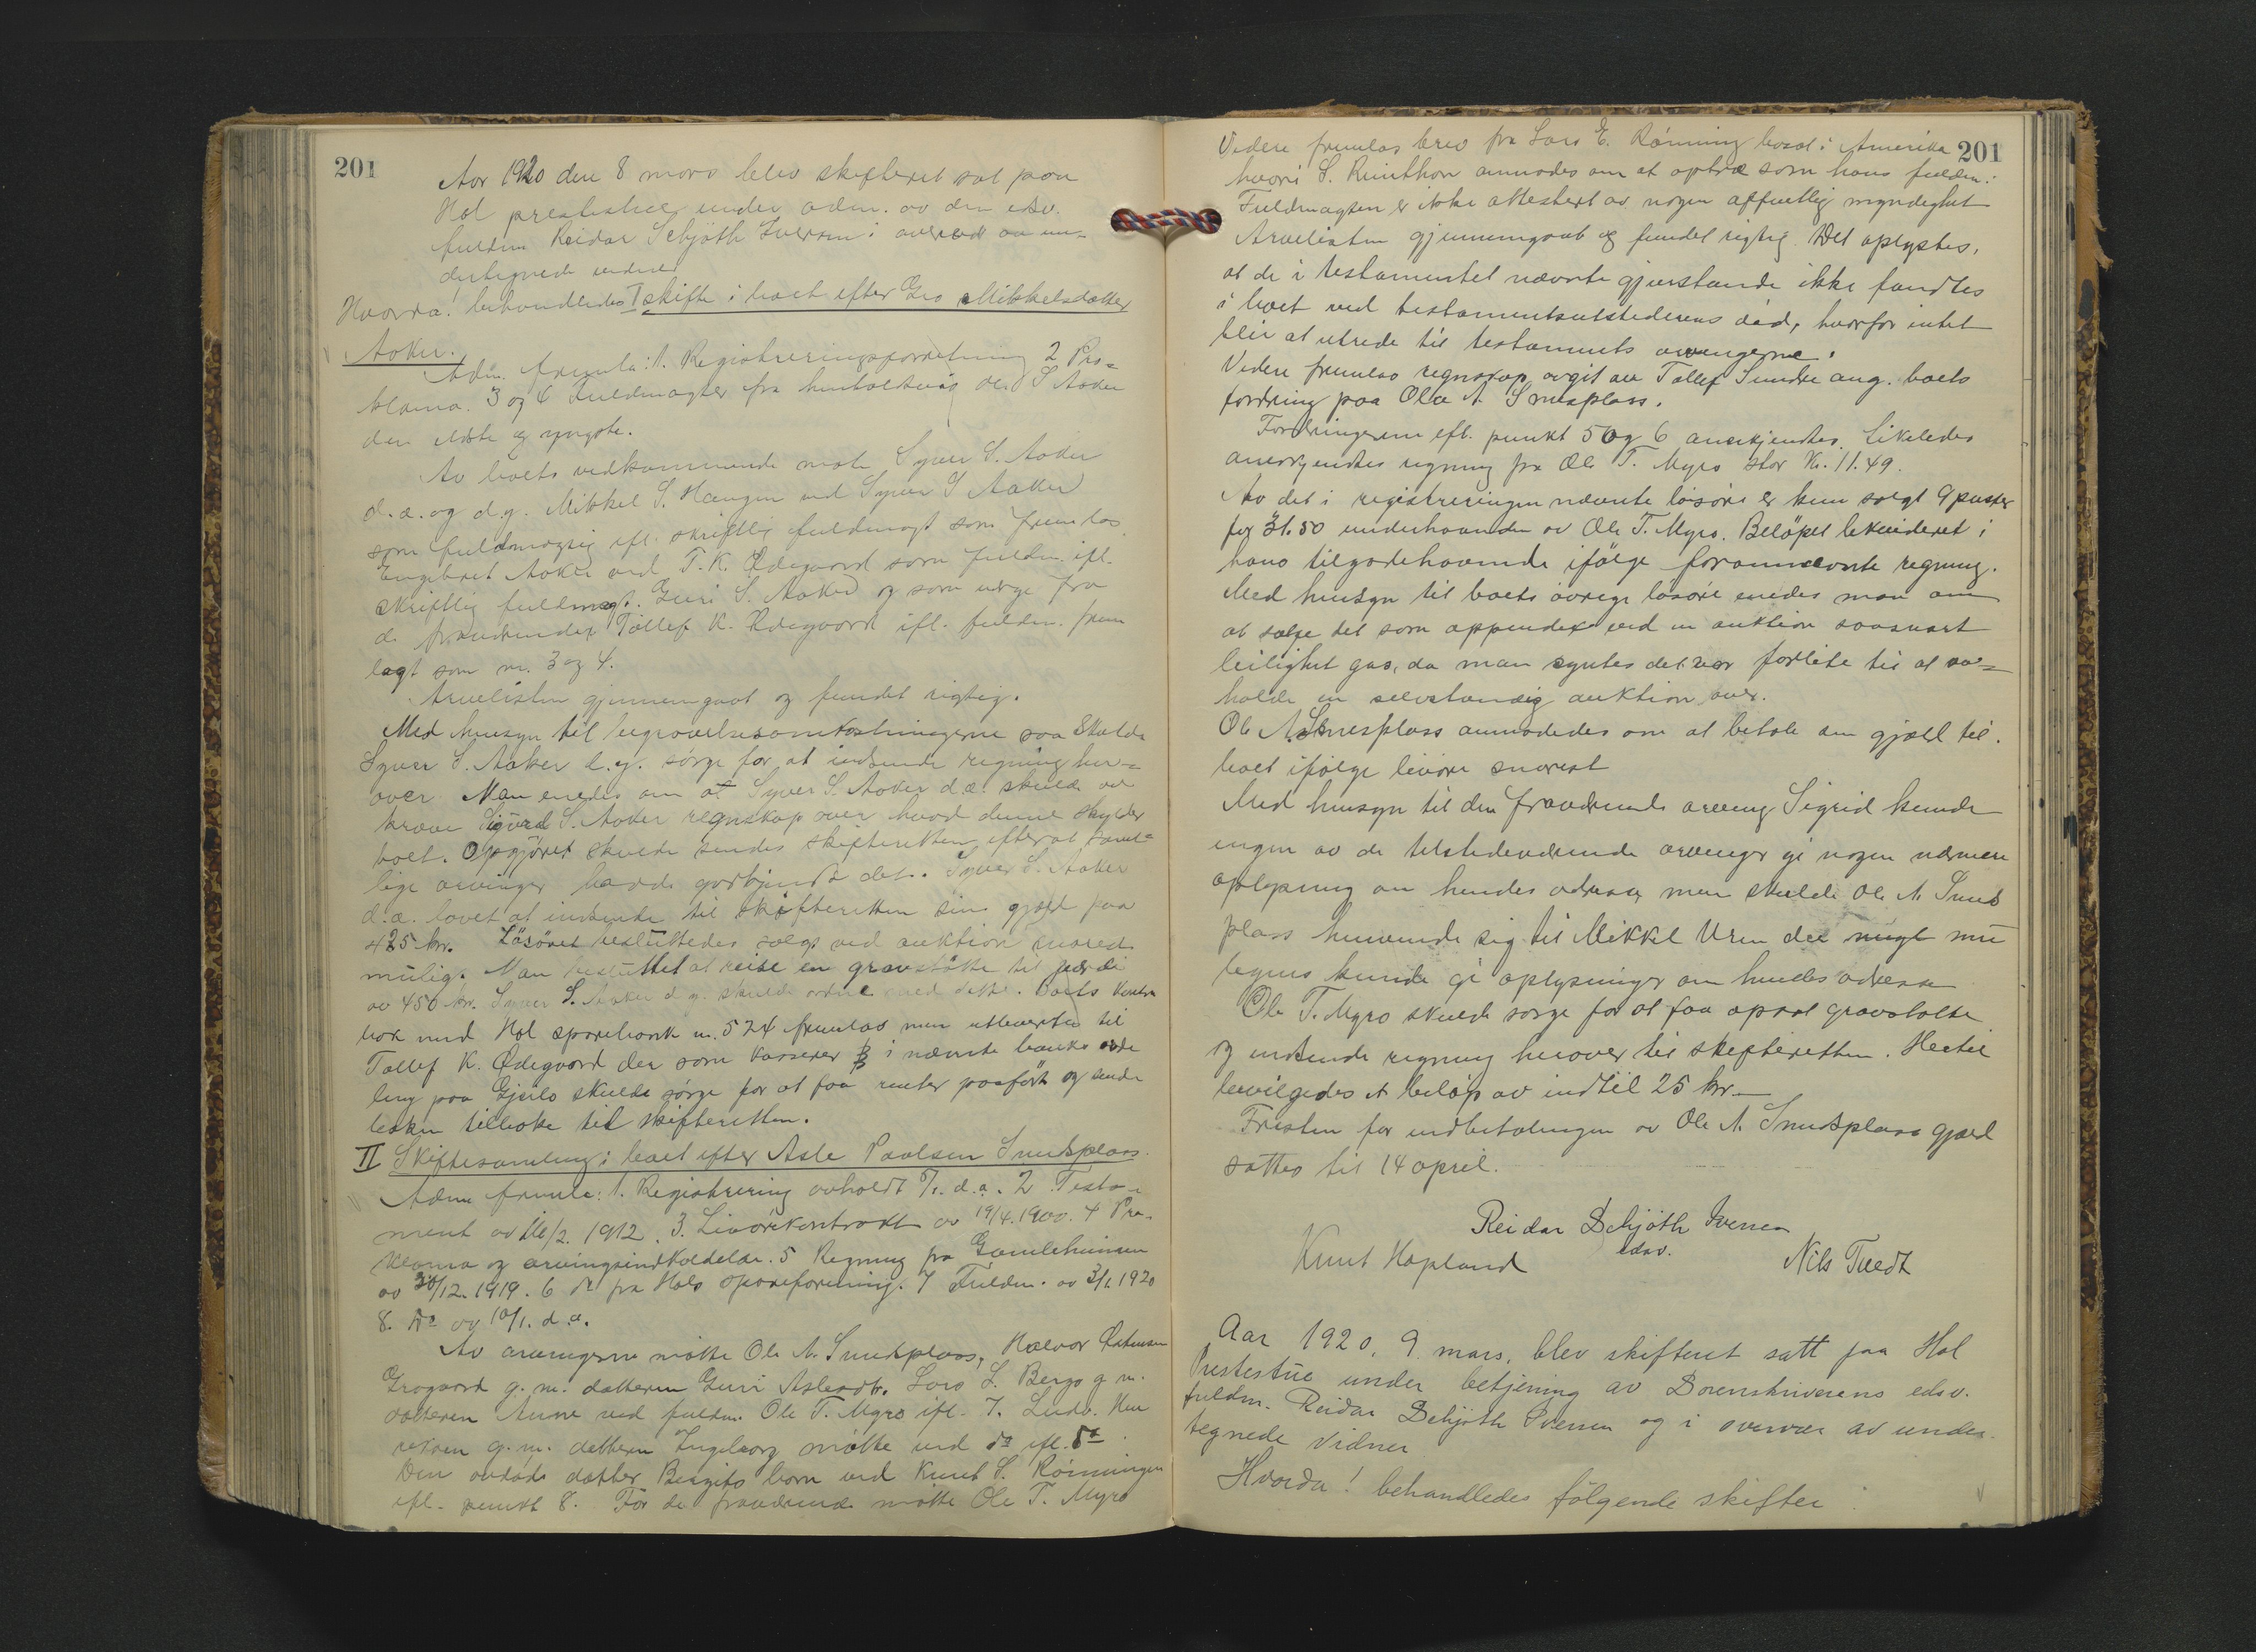 201
Aar 1920 den 8 mars blev skifteret sat paa
Hol prestestue under adm. av den edsv.
fuldm Reidar Schjöth Iversen i overvær av un-
dertegnede vidner
Hvorda! behandledes I skifte i boet efter Gro Mikkelsdatter
Aaker.
Adm. fremla: 1. Registreringsforretning 2 Pro-
klama. 3 og 4 Fuldmagter fra henholdsvis S Aaker
den ældste og yngste.
Av boets vedkommende møtte Syver S. Aaker
d.æ. og d.y. Mikkel S. Haugen ved Syver S Aaker
som fuldmægtig ifl. skriftlig fuldmagt som fremlas.
Engebret Aaker ved T. K. Ødegaard som fuldm. ifl.
skriftlig fuldmagt. Guri S. Aaker og som verge fra
de fraværende Tollef K. Ødegaard ifl. fuldm. frem
lagt som nr. 3 og 4.
Arvelisten gjennemgaat og fundet rigtig.
Med hensyn til begravelsesomkostningerne saa skulde
Syver S. Aaker d.y. sørge for at indsende regning her-
over. Man enedes om at Syver S. Aaker d.æ. skulde av
kræve Sigurd S. Aaker regnskap over hvad denne skylder
boet. Opgjöret skulde sendes skifteretten efter at samt-
lige arvinger havde godkjendt det. Syver S. Aaker
d.æ. lovet at indsende til skifteretten sin gjæld paa
425 kr. Lösöret besluttedes solgt ved auktion snarest
mulig. Man besluttet at reise en gravstötte til værdi
av 450 kr. Syver S. Aaker d.y. skulde ordne med dette. Boets kontra
bok med Hol sparebank nr. 574 fremlas men utlevertes til
Tollef K. Ødegaard der som kasserer i nævnte banks avde
ling paa Gjeilo skulde sörge for at faa renter paafört og sende
boken tilbake til skifteretten.
II Skiftesamling i boet efter Asle Paalsen Snedsplass.
Adm fremla: 1. Registrering avholdt 7/1. d.a. 2 Testa-
ment av 16/2. 1912. 3. Livörekontrakt av 19/4. 1900. 4 Pro-
klama og arvingsindkaldelse. 5 Regning fra Gamlehimen
av 30/12. 1919. 6 do fra Hols spareforening. 7 Fuldm. av 3/1. 1920
8. Do av 10/1. d.a.
Av arvingerne mötte Ole A. Snedsplass, Halvor Østensen
Grogaard g. m. datteren Guri Aslesdtr. Lars L. Berge g m.
datteren Anne ved fuldm. Ole T. Myro ifl. 7. Ludv. Hen
g. m. datteren Ingeborg mötte ved do ifl. do
Den avdöde datter Birgits barn ved Knut S. Rönningen
ifl. punkt 8. For de fraværende mötte Ole T. Myro
201
Videre fremlas brev fra Lars E. Rönning bosat i Amerika
hvori S. Rinthon anmodes om at optræ som hans fuldm.
Fuldmagten er ikke attestert av nogen offentlig myndighet
Arvelisten gjennemgaat og fundet rigtig. Det oplystes,
at de i testamentet nævnte gjenstande ikke fandtes
i boet ved testamentsutstederens död, hvorfor intet
blir at utrede til testaments arvingerne.
Videre fremlas regnskap avgit av Tollef Sundre ang. boets
fordring paa Ola A. Snesplass.
Fordringerne efl. punkt 5 og 6 anerkjendtes. Likeledes
anerkjendtes regning fra Ole T. Myro stor Kr. 11.49.
Av det i registreringen nævnte lösöre er kun solgt 9 poster
for 31.50 underhaanden av Ole T. Myro. Belöpet likvideret i
hans tilgodehavende ifölge forannævnte regning.
Med hensyn til boets övrige lösöre enedes man om
at sælge det som appendix ved en auktion saasnart
leilighet gas, da man syntes det var forlite til at av-
holde en selvstændig auktion over.
Ole A. Snesplass anmodedes om at betale sin gjæld til
boet ifölge livöre snarest
Med hensyn til den fraværende arving Sigrid kunde
ingen av de tilstedeværende arvinger gi nogen nærmere
oplysning om hendes adresse men skulde Ole A. Sneds
plass henvende sig til Mikkel Uren der mugl mu
legens kunde gi oplysninger om hendes adresse
Ole T. Myro skulde sørge for at faa opsat gravstøtte
og indsende regning herover til skifteretten. Hertil
bevilgedes et belöp av indtil 25 kr.
Fristen for indbetalingen av Ole A. Snedsplass gjæld
sattes til 14 april.
Reidar Schjöth Iversen
edsv.
Knut Hagland
Nils Tuedt
Aar 1920, 9 mars, blev skifteret satt paa Hol
Prestestue under betjening av Sorenskriverens edsv.
fuldm. Reidar Schjöth Iversen og i overvær av under-
tegnede vidner
Hvorda! behandledes følgende skifter: